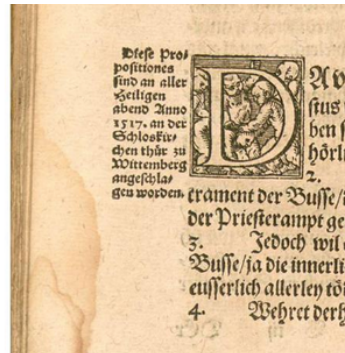 Diese Pro⸗
positiones
sind an aller
Heiligen
abend Anno
1517. an der
Schloskir⸗
chen thür zu
Wittemberg
angeschla⸗
gen worden.
D
stus
ben
hörli
2.
crament der Busse/
der Priesterampt ge
3. Jedoch wil
Busse/ja die innerli
eusserlich allerley tö
4. Wehret derh